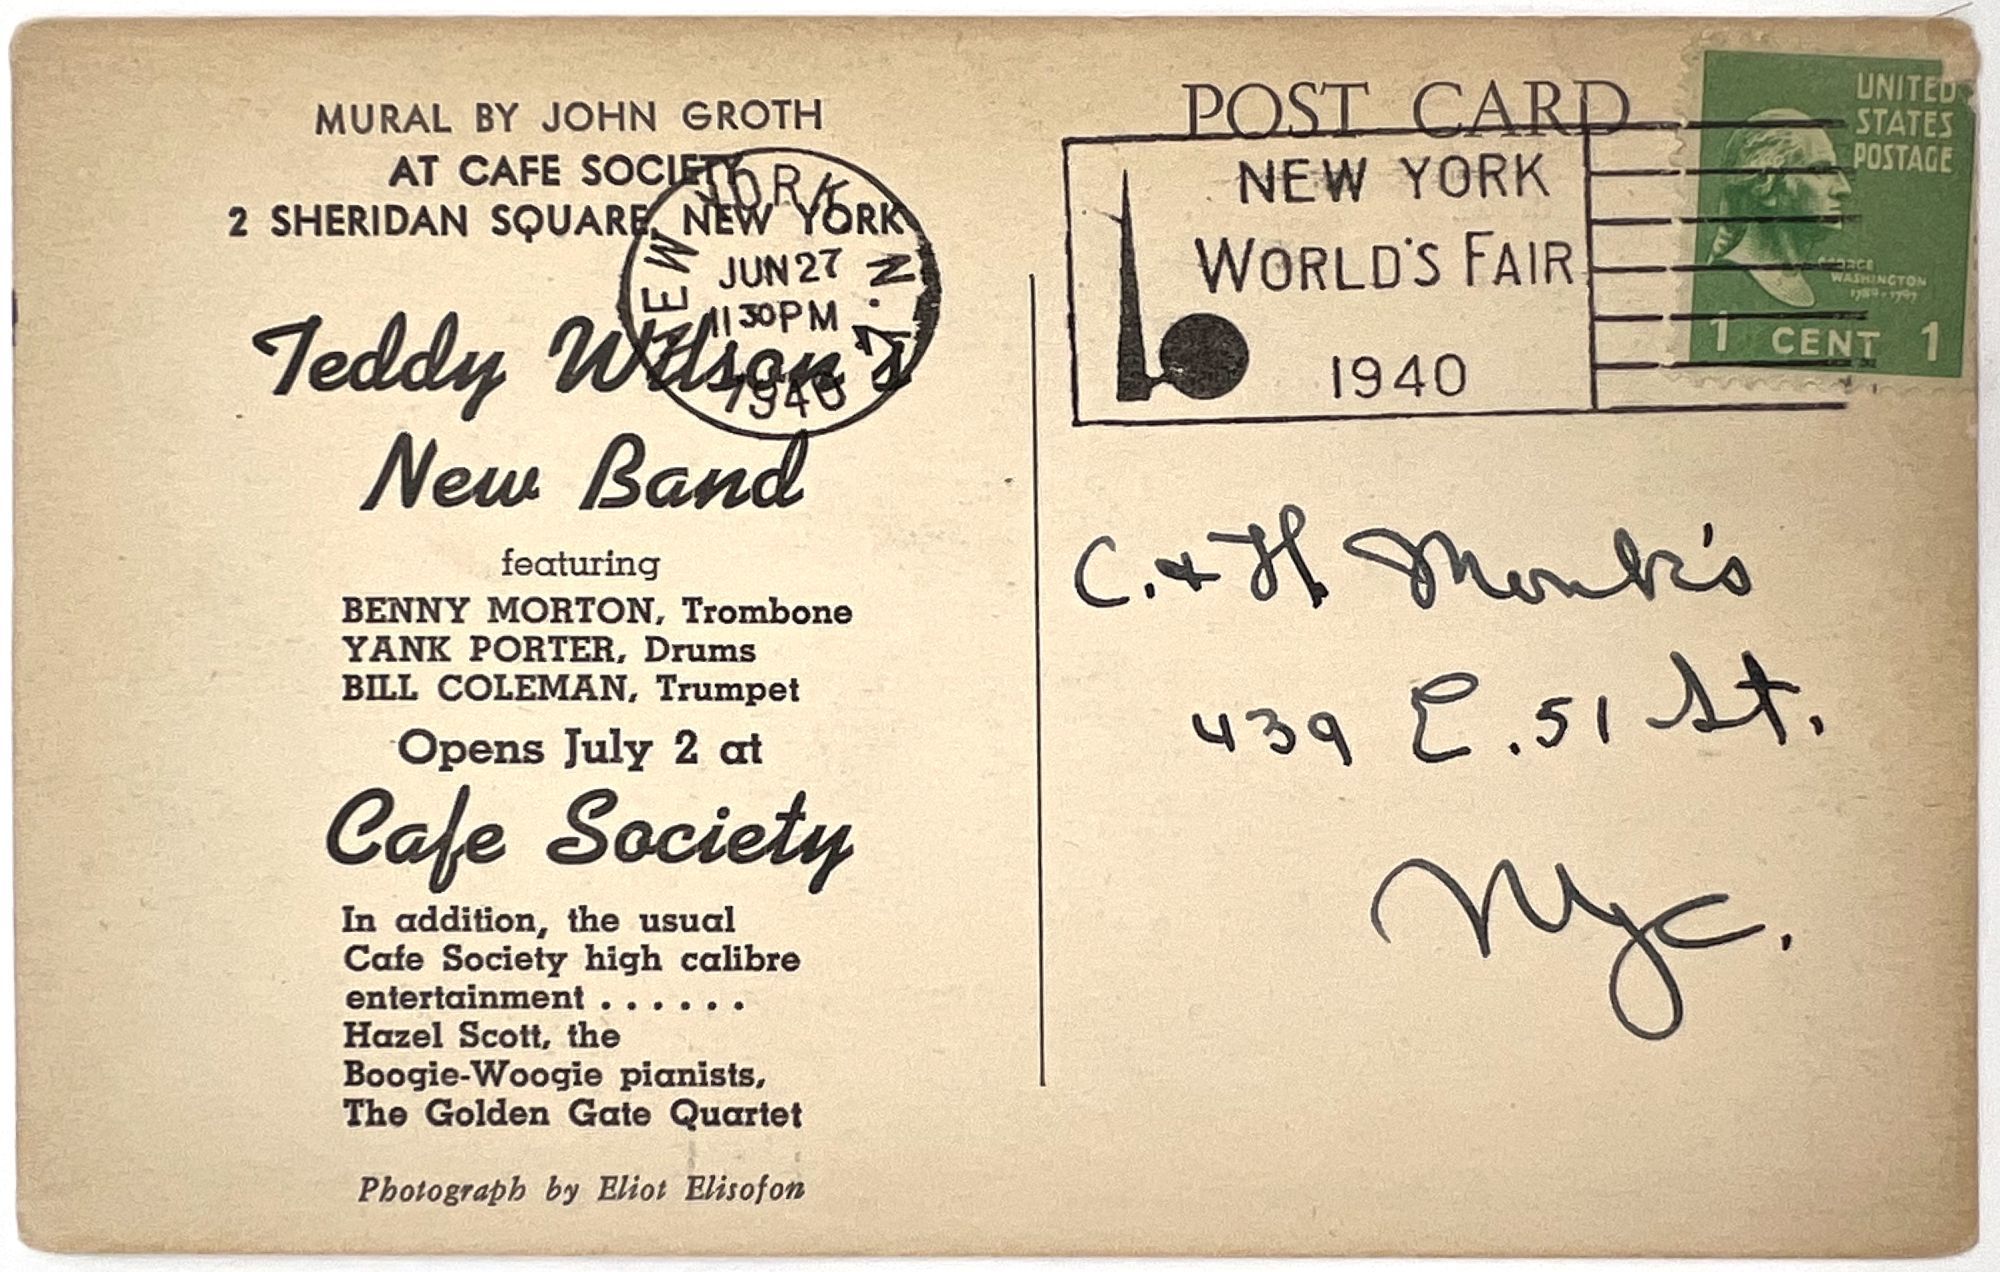 MURAL BY JOHN GROTH
AT CAFE SOCIETY
2 SHERIDAN SQUARE, NEW YORK
NEW YORK, N.Y.
JUN 27
11 30 PM
1940
Teddy Wilson's
New Band
featuring
BENNY MORTON, Trombone
YANK PORTER, Drums
BILL COLEMAN, Trumpet
Opens July 2 at
Cafe Society
In addition, the usual
Cafe Society high calibre
entertainment . . . . . .
Hazel Scott, the
Boogie-Woogie pianists,
The Golden Gate Quartet
Photograph by Eliot Elisofon
POST CARD
NEW YORK
WORLD'S FAIR
1940
UNITED
STATES
POSTAGE
GEORGE
WASHINGTON
1789-1797
1 CENT 1
C. & H Monk's
439 E. 51 St.
Nyc.